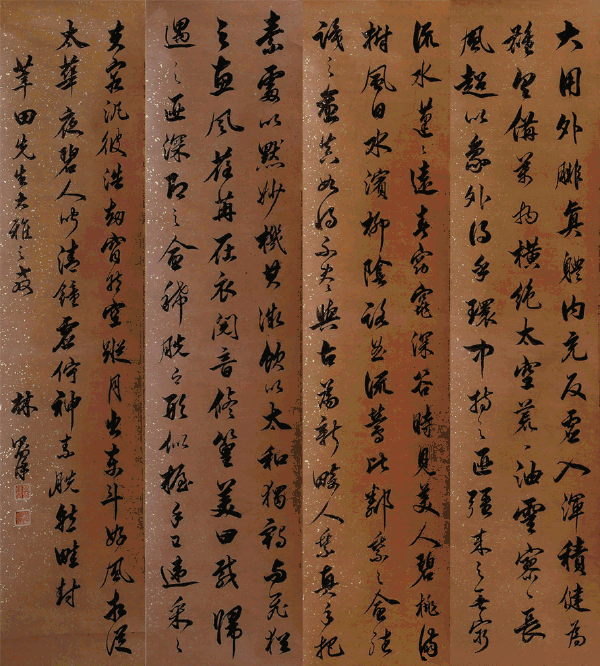 大用外腓真體內充反虛入渾積健為
雄具備萬物橫絕太空荒々油雲寥々長
風超以象外得乎環中持之匪強來之無窮
流水蓬々遠春窈窕深谷時見美人碧桃滿
樹風日水濱柳陰路曲流鶯比鄰乘之愈往
識之愈真如將不盡與古為新畸人乘真手把
素處以默妙機其微飲以太和獨鶴與飛猶
之惠風荏苒在衣閱音修篁美曰載歸
遇之匪深即之愈稀脫有形似握手已違采々
夫容泛彼浩劫窅然空蹤月出東斗好風相從
太華夜碧人聞清鐘虛佇神素脫然畦封
莘田先生大雅之教 林則徐